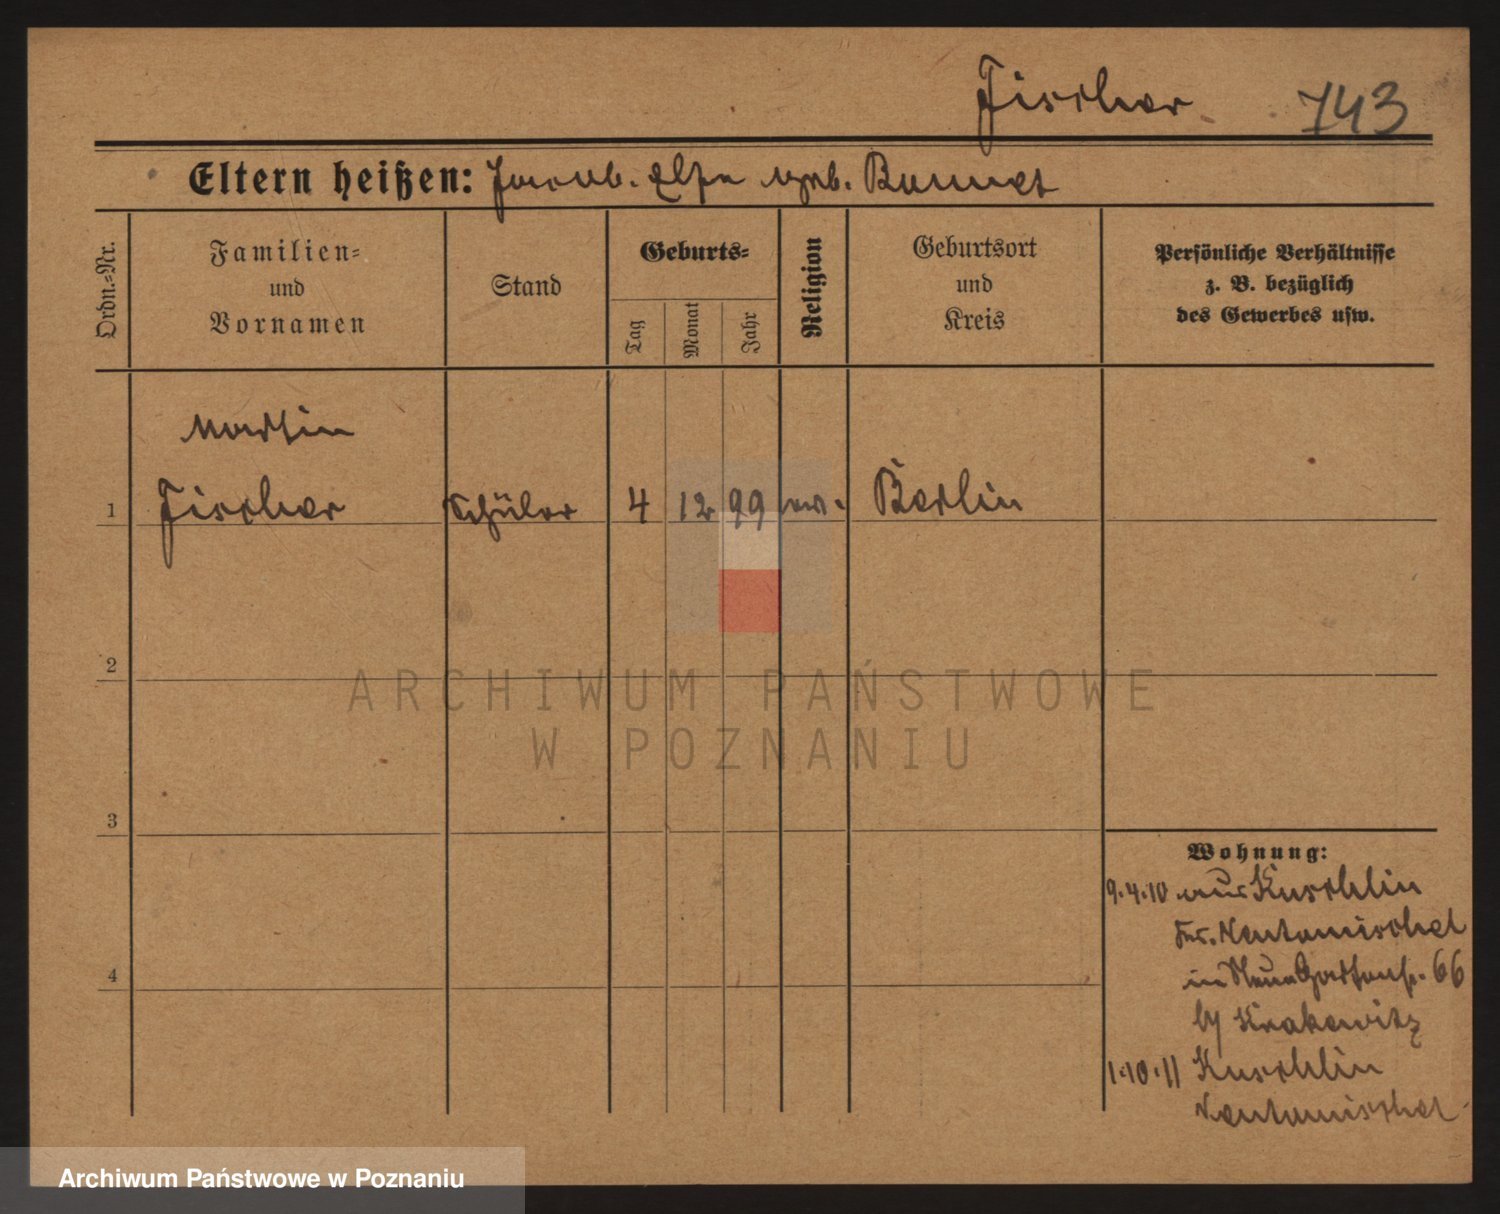 Fischer 743
Eltern heißen: Jacob. Elsa geb. Bonnet
Ordn.=Nr.
Familien=
und
Vornamen
Stand
Geburts=
Tag
Monat
Jahr
Religion
Geburtsort
und
Kreis
Persönliche Verhältnisse
z. B. bezüglich
des Gewerbes usw.
Martin
1 Fischer Schüler 4 12 99 ev. Berlin
2
3
4
Wohnung:
9.4.10 aus Kuschlin
Kr. Neutomischel
in Neue Gartenstr. 66
by Krakowitz
1.10.11 Kuschlin
Neutomischel
ARCHIWUM PAŃSTWOWE
W POZNANIU
Archiwum Państwowe w Poznaniu